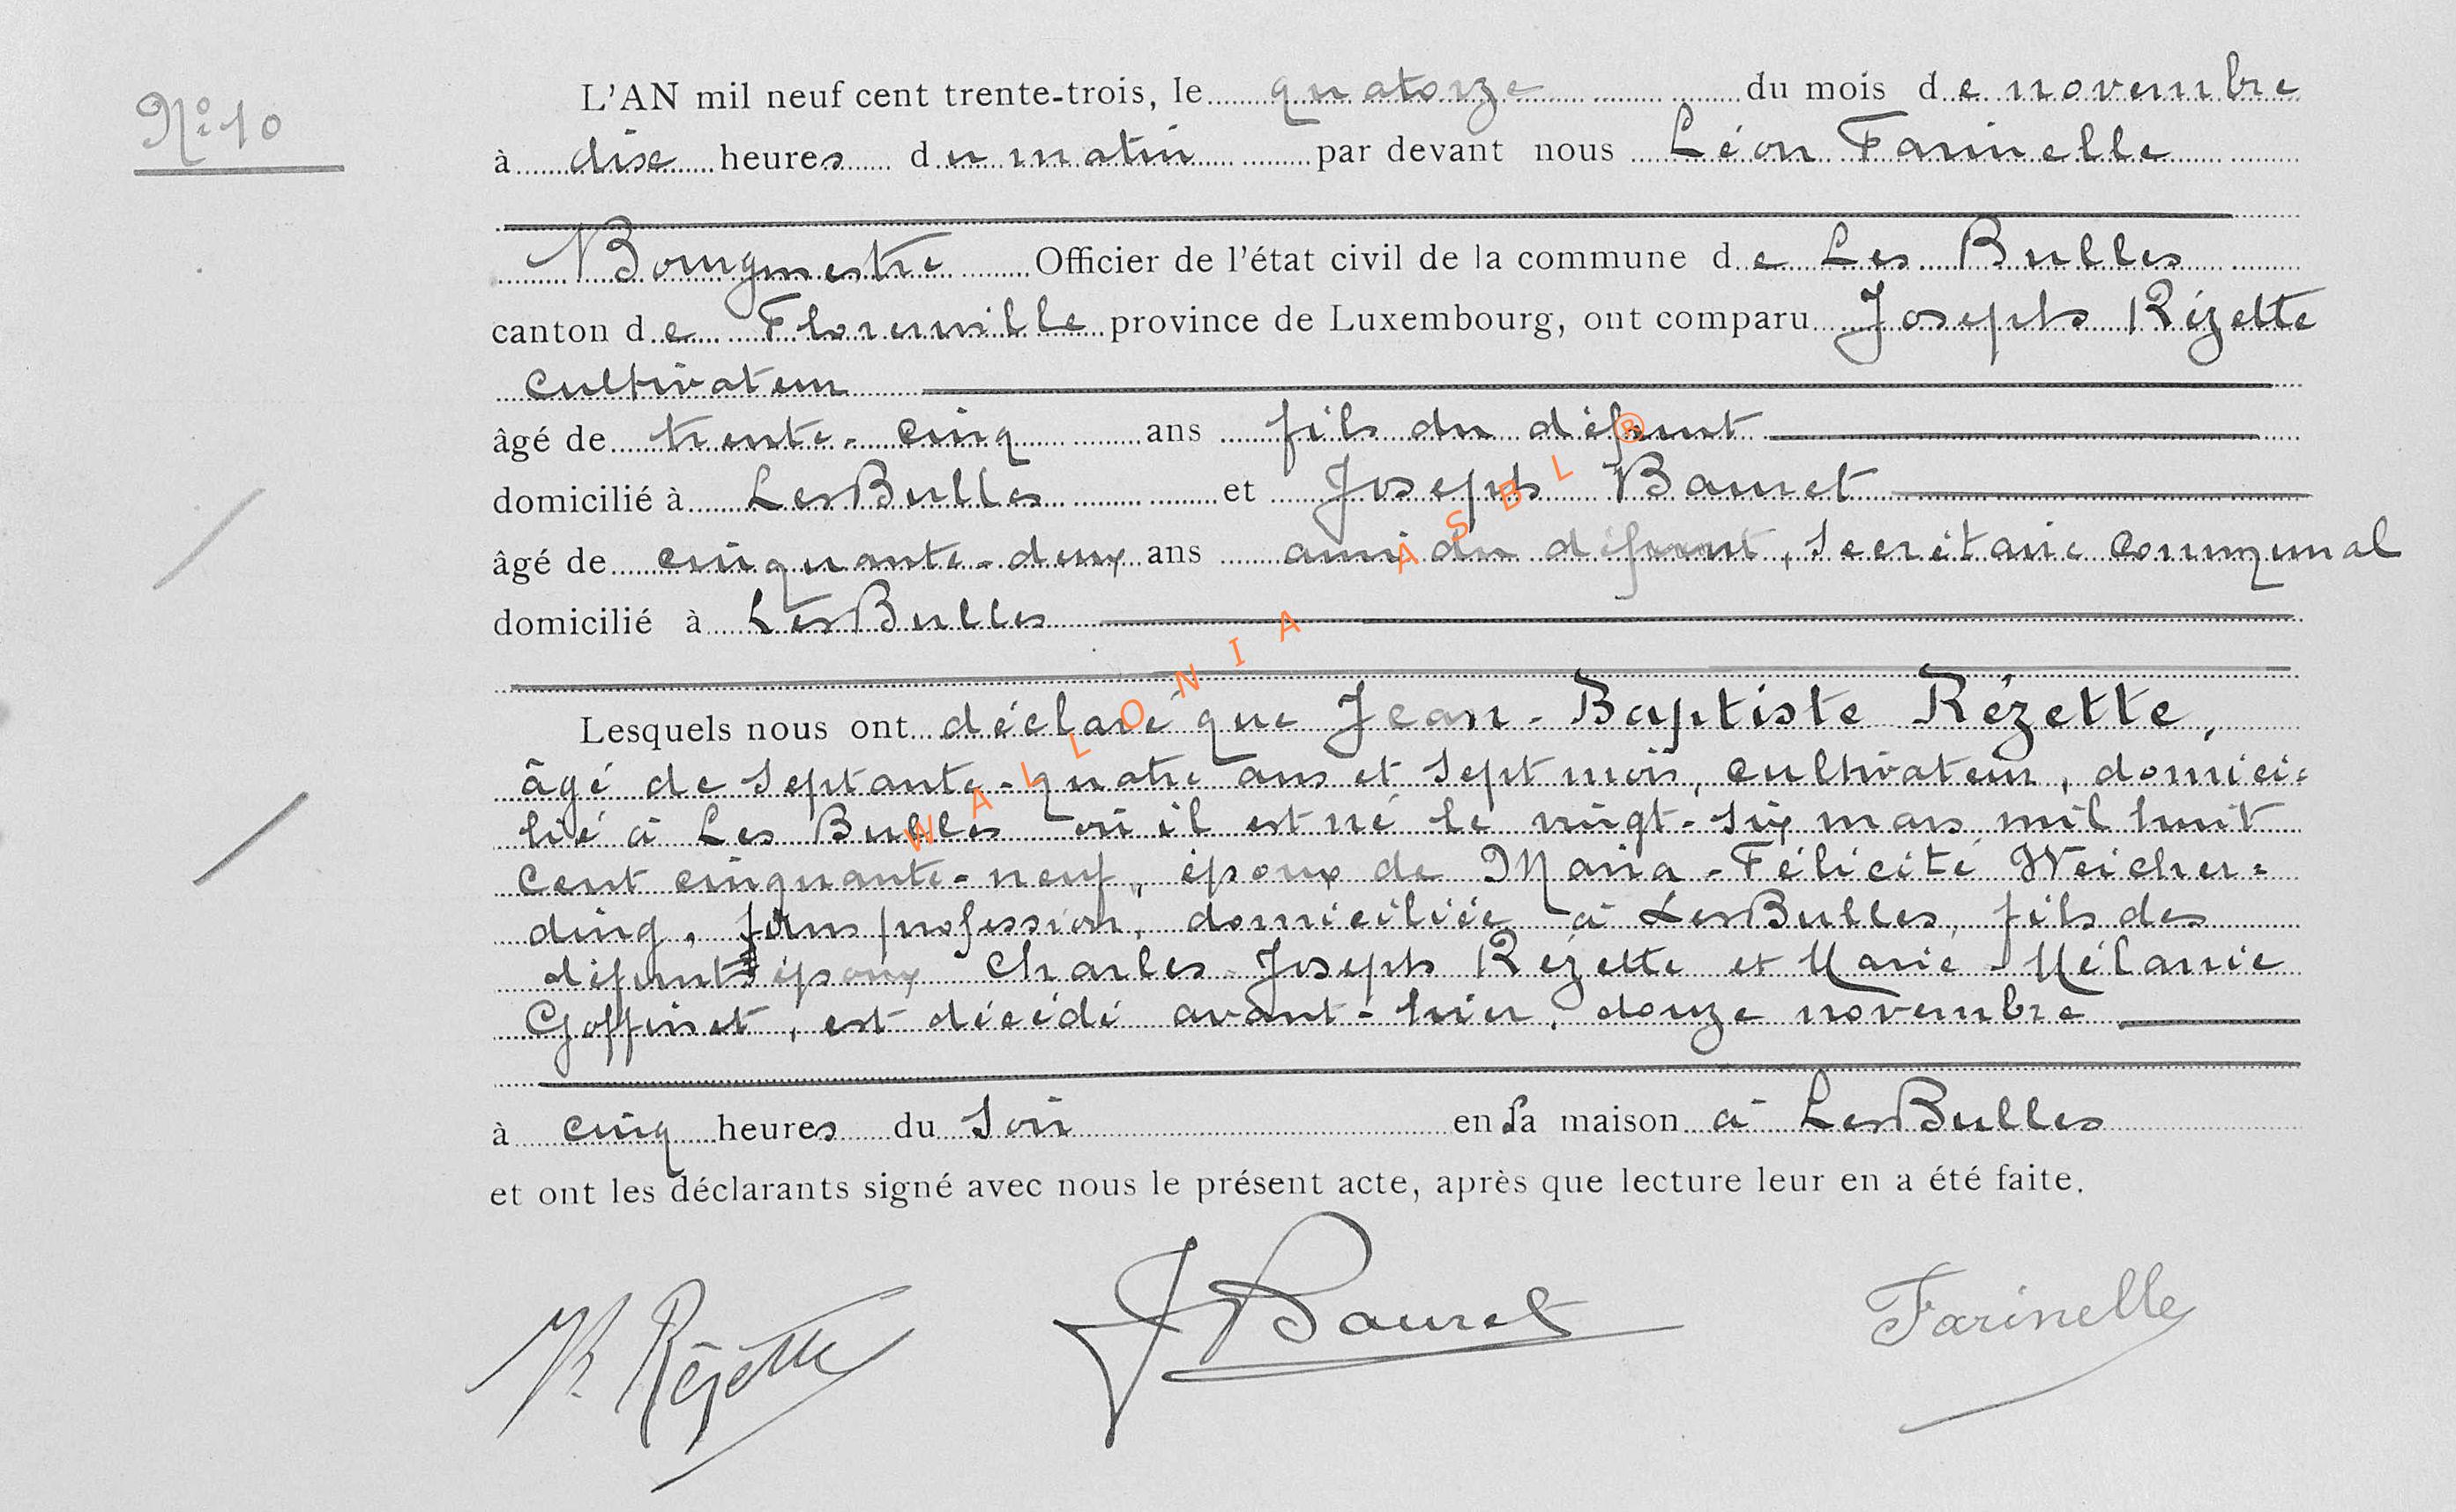 N° 10
L'AN mil neuf cent trente-trois, le quatorze du mois de novembre
à dix heures du matin par devant nous Léon Farinelle
Bourgmestre Officier de l'état civil de la commune de Les Bulles
canton de Florenville province de Luxembourg, ont comparu Joseph Rézette
cultivateur
âgé de trente-cinq ans fils du défunt
domicilié à Les Bulles et Joseph Bauret
âgé de cinquante-deux ans ami du défunt, secrétaire communal
domicilié à Les Bulles
Lesquels nous ont déclaré que Jean-Baptiste Rézette,
âgé de septante-quatre ans et sept mois, cultivateur, domici=
lié à Les Bulles où il est né le vingt-six mars mil huit
cent cinquante-neuf, époux de Maria-Félicité Weicher=
ding, sans profession, domiciliée à Les Bulles, fils des
défunts époux Charles-Joseph Rézette et Marie-Mélanie
Goffinet, est décédé avant-hier, douze novembre
à cinq heures du soir en sa maison à Les Bulles
et ont les déclarants signé avec nous le présent acte, après que lecture leur en a été faite.
Rézette J Bauret Farinelle
WALLONIA ASBL ®